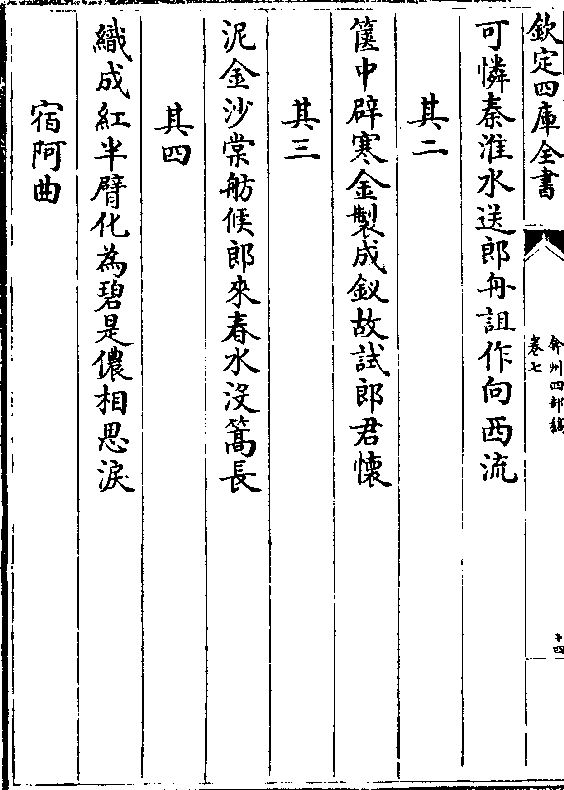 欽定四庫全書
弇州四部稿
卷七
十四
可憐秦淮水送郎舟詛作向西流
其二
篋中辟寒金製成釵故試郎君懷
其三
泥金沙棠舫候郎來春水沒篙長
其四
織成紅半臂化為碧是儂相思淚
宿阿曲